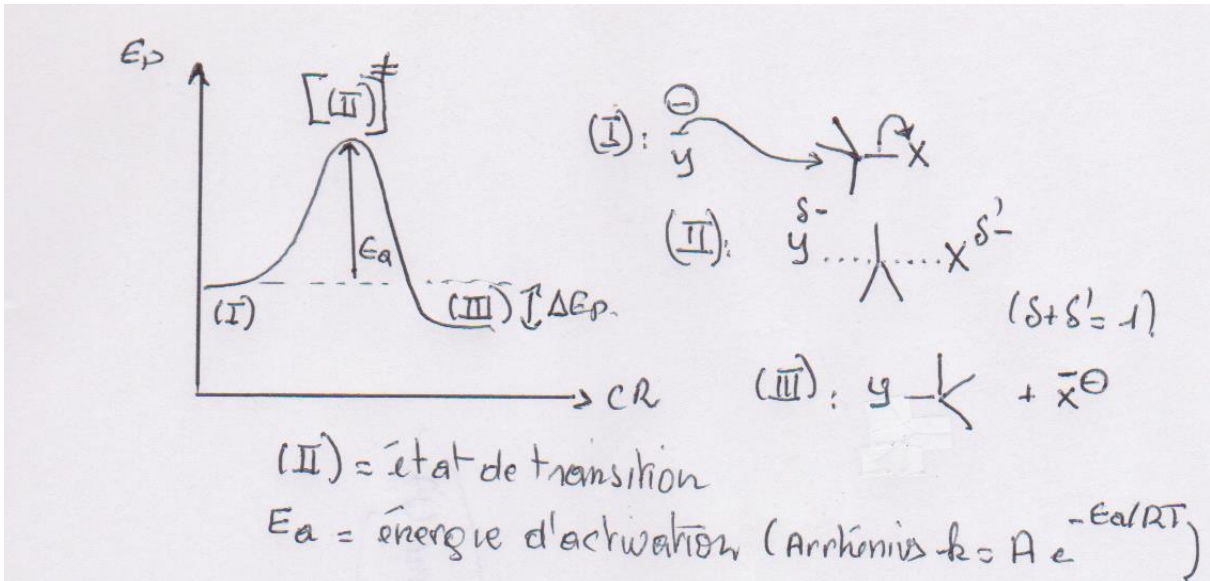 Ep
[(II)]≠
Ea
(I)
(III) ΔEp.
CR
(I): ȳ ⊖ X
(II): y δ- ........ X δ'-
(δ+δ'=1)
(III): y + x̄ ⊖
(II) = état de transition
Ea = énergie d'activation (Arrhénius k = A e -Ea/RT)